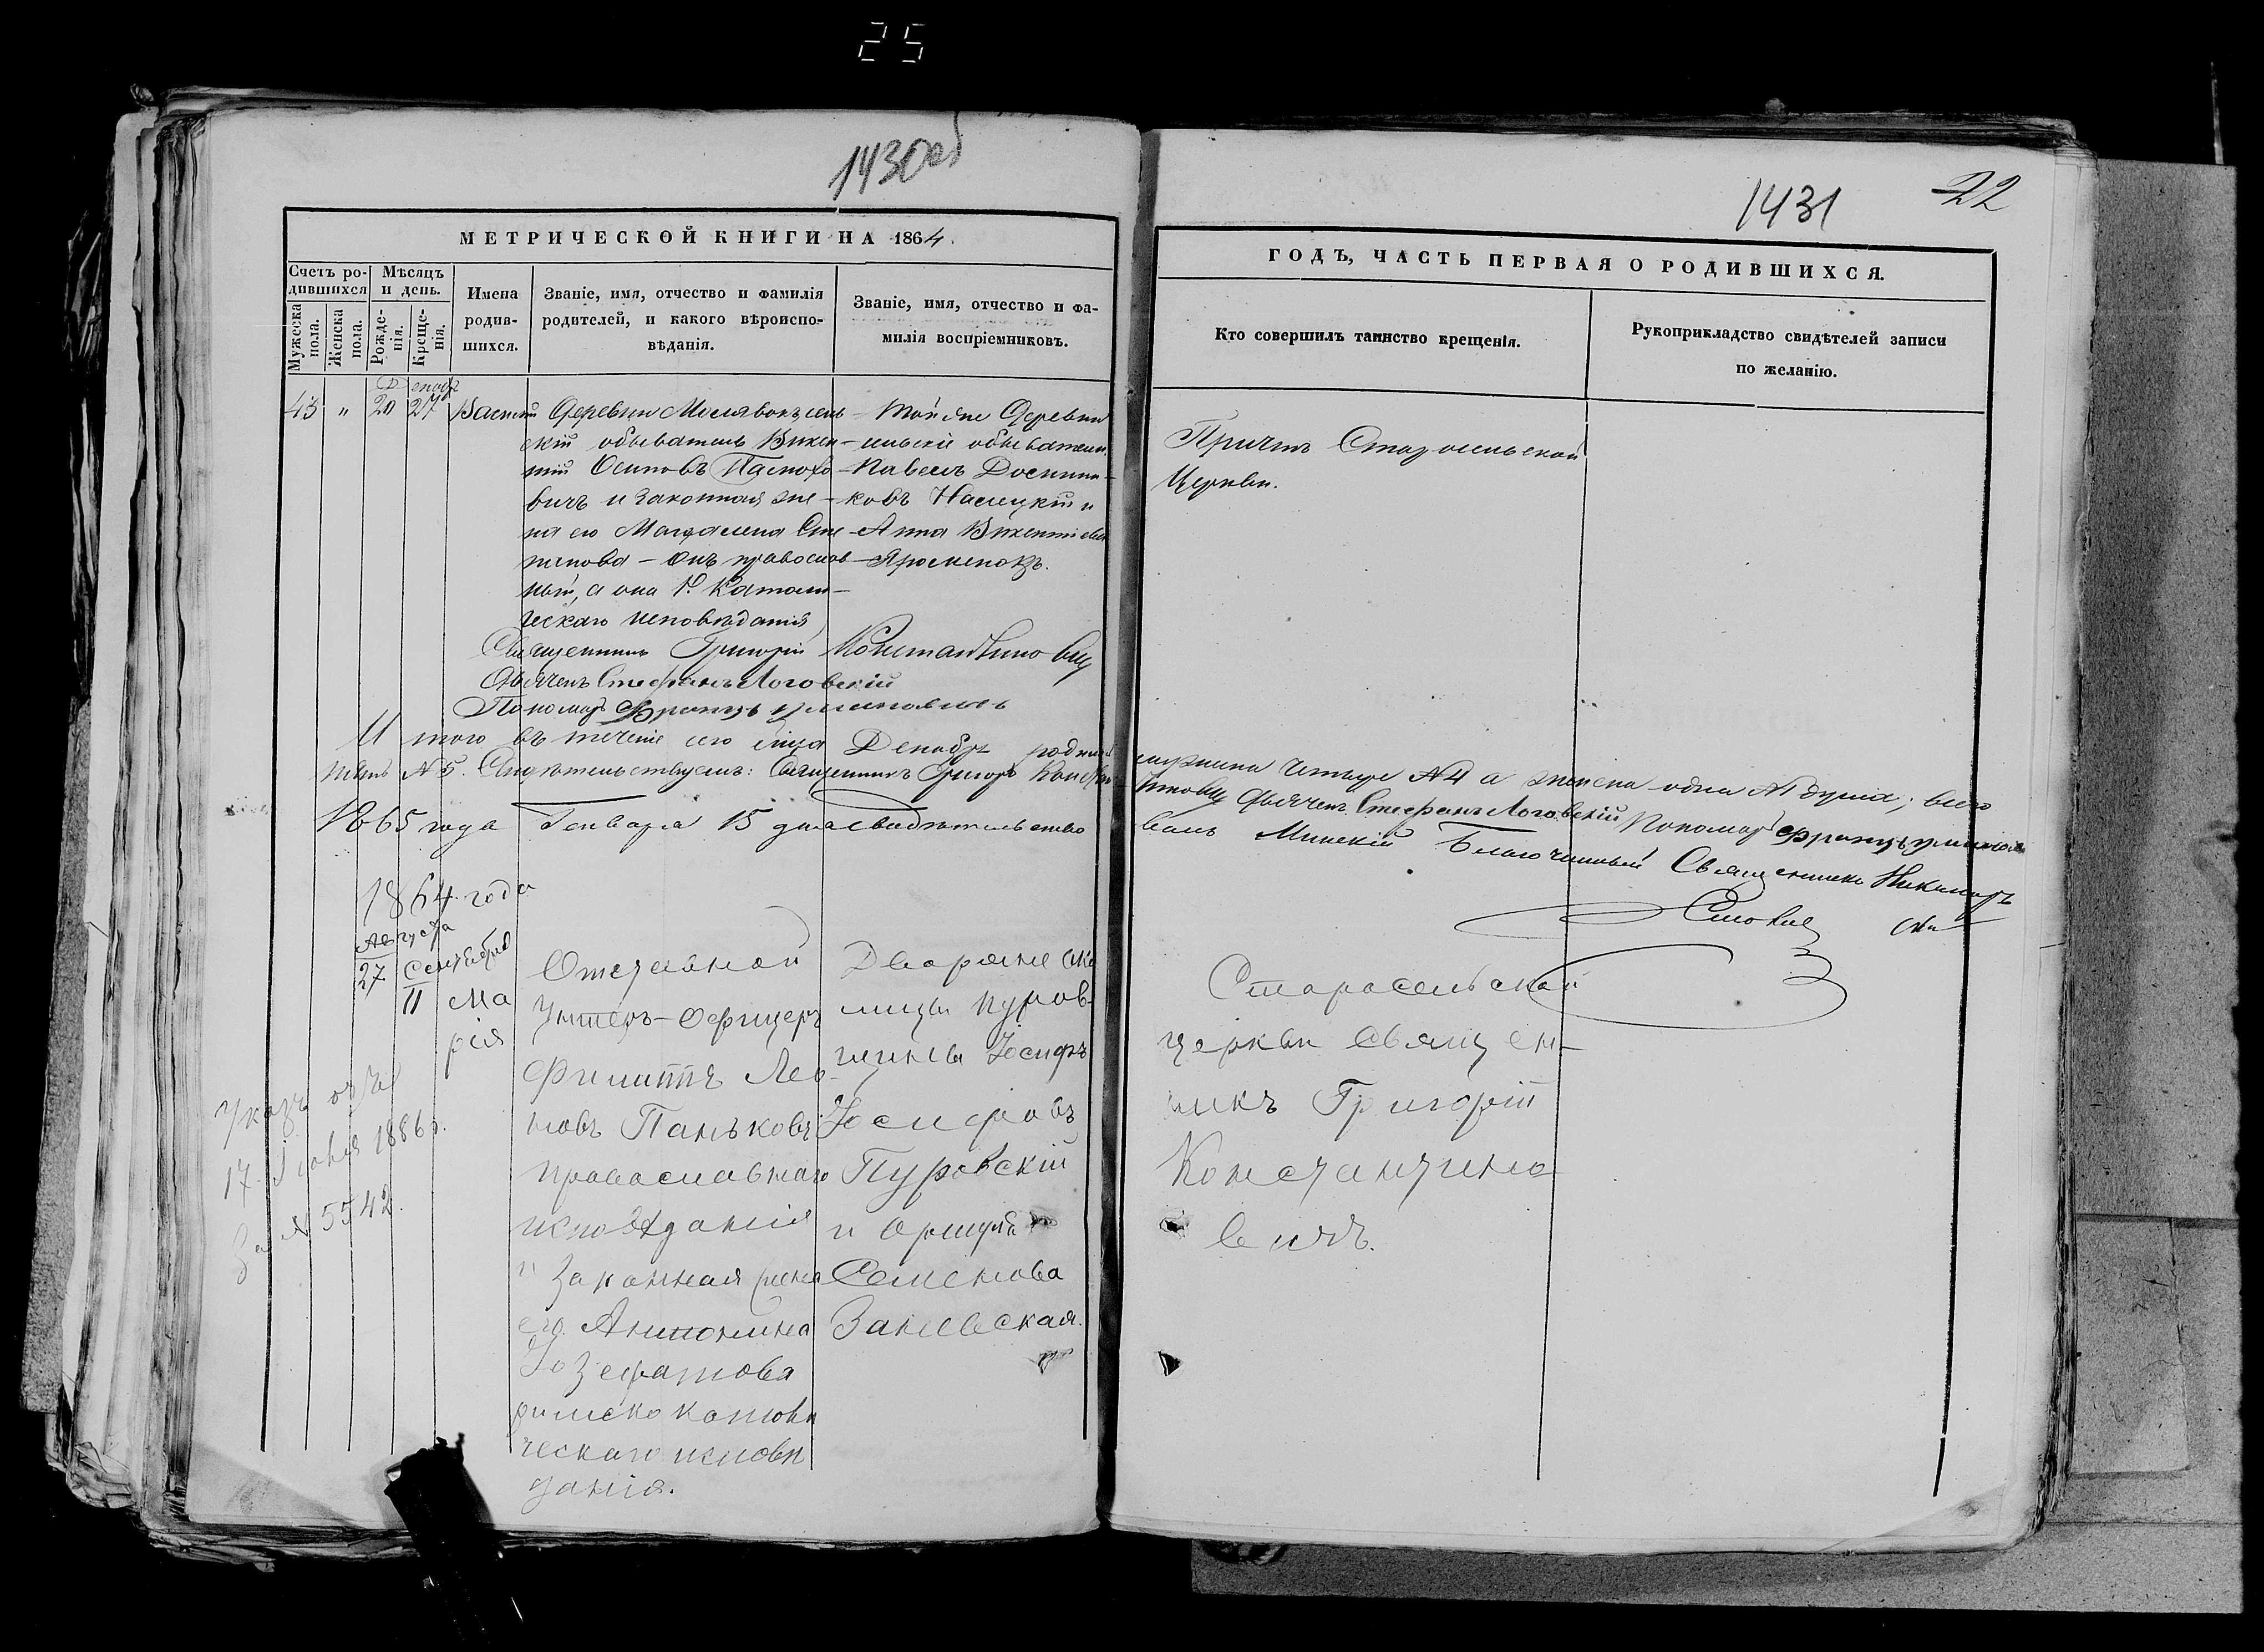 25
1430об
1431
22
МЕТРИЧЕСКОЙ КНИГИ НА 1864.
Счетъ ро-
дившихся
Мѣсяцъ
и день.
Мужеска
пола.
Женска
пола.
Рожде-
нія.
Креще-
нія.
Имена
родив-
шихся.
Званіе, имя, отчество и фамилія
родителей, и какого вѣроиспо-
вѣданія.
Званіе, имя, отчество и фа-
милія воспріемниковъ.
ГОДЪ, ЧАСТЬ ПЕРВАЯ О РОДИВШИХСЯ.
Кто совершилъ таинство крещенія.
Рукоприкладство свидѣтелей записи
по желанію.
43 " 20 27
Деревни сель
скій обыватель Викен-
тій Осиповъ Пастухо
вичъ и законная же-
на его Магдалена Сте
панова - онъ православ
ный, а она Р. Катол-
ческаго исповѣданія
Той же Деревни
сельскіе обыватели
Павелъ
ковъ и
Анна Викентіева
Причтъ Старосельской
Церкви.
Священникъ Григорій Константинович
Дьячекъ Стефанъ Логовскій
Пономарь Францъ
Итого въ теченіе сего Декабря родилось
мужеска четыре №4 а женска одна №1 душа; всего
пять №5. Свидѣтельствуемъ: Священникъ Григорій
Дьячекъ Стефанъ Логовскій Пономарь Францъ
1865 года Генваря 15 дня свидѣтельство
валъ Минскій Благочинный Священникъ Никаноръ
1864 года
Августа
27
Сентября
11
Ма
рія
Отставной
Унтеръ-Офицеръ
Филиппъ Лео-
новъ Паньковъ
православнаго
исповѣданія
и законная жена
его Антонина
Іозефатова
римско католи
ческаго исповѣ
данія.
Дворяне око
лицы Пуров-
щины Іосифъ
Іосифовъ
Пуровскій
и
Семенова
Заневская.
Старосельской
церкви Священ-
никъ Григорій
Константино
вичъ.
Указъ отъ
17 Іюня 1886 г.
За № 5542.